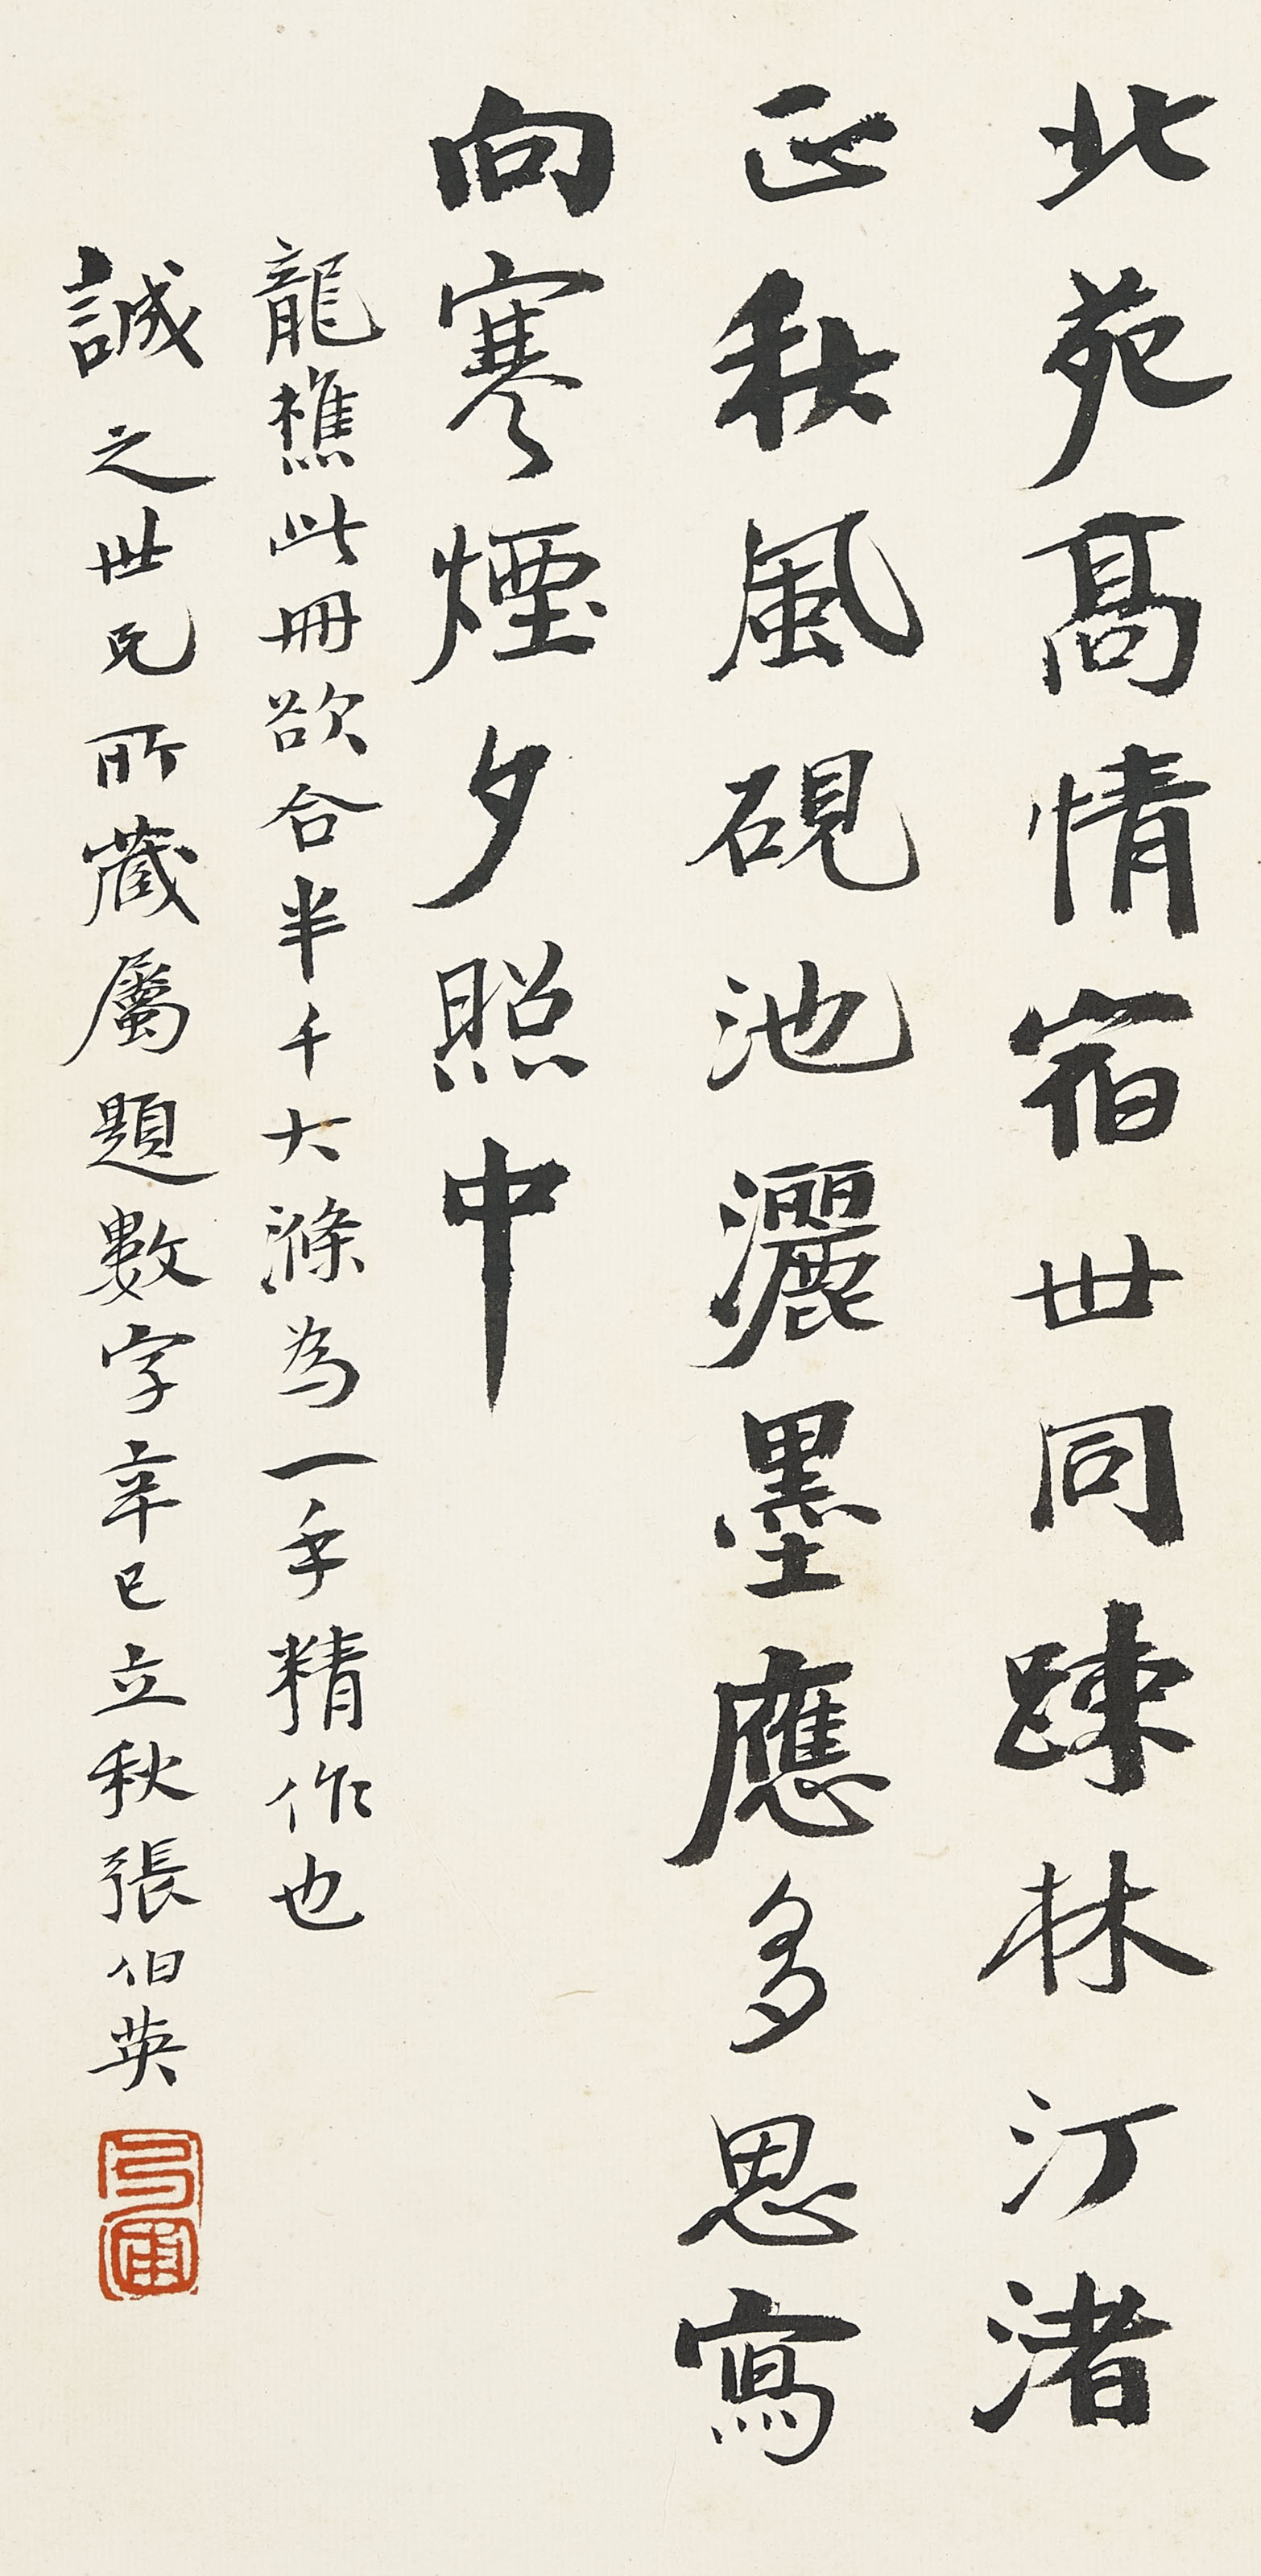 北苑高情宿世同踈林汀渚
正秋風硯池灑墨應多思寫
向寒煙夕照中
龍樵此冊欲合半千大滌為一手精作也
誠之世兄所藏屬題數字辛巳立秋張伯英